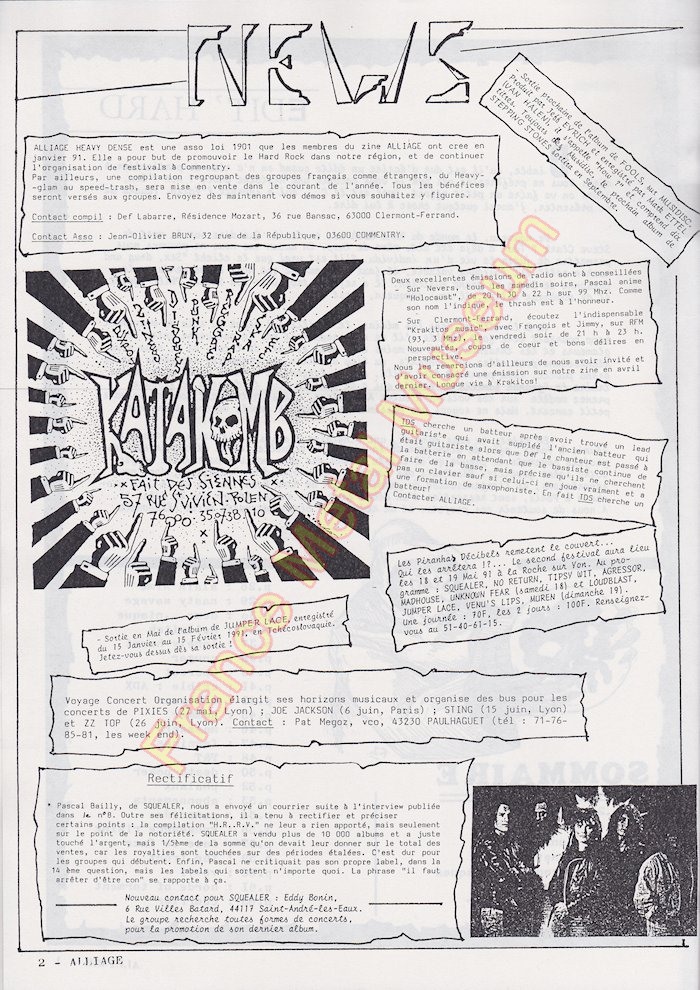 NEWS
Sortie prochaine de l'album de FOOLS, sur MUSIDISC.
Produit par Jeff EYRICH et enregistré par Mark ETTEL
(VAN HALEN), il s'appelle "Nowin" et comprend dix
titres. Toujours chez Musidisc, le prochain album de
STEPPING STONE sortira en Septembre.
ALLIAGE HEAVY DENSE est une asso loi 1901 que les membres du zine ALLIAGE ont cree en
janvier 91. Elle a pour but de promouvoir le Hard Rock dans notre région, et de continuer
l'organisation de festivals à Commentry.
Par ailleurs, une compilation regroupant des groupes français comme étrangers, du Heavy-
-glam au speed-trash, sera mise en vente dans le courant de l'année. Tous les bénéfices
seront versés aux groupes. Envoyez dès maintenant vos démos si vous souhaitez y figurer.
Contact compil : Def Labarre, Résidence Mozart, 36 rue Bansac, 63000 Clermont-Ferrand.
Contact Asso : Jean-Olivier BRUN, 32 rue de la République, 03600 COMMENTRY.
KATAKOMB
FAIT DES SIENNES
57 RUE St VIVIEN. ROUEN
76000. 35.07.38.10
Deux excellentes émissions de radio sont à conseillées
- Sur Nevers, tous les samedis soirs, Pascal anime
"Holocaust", de 20 h 30 à 22 h sur 99 Mhz. Comme
son nom l'indique, le thrash est à l'honneur.
- Sur Clermont-Ferrand, écoutez l'indispensable
"Krakitos Music", avec François et Jimmy, sur RFM
(93, 3 Mhz), le vendredi soir de 21 h à 23 h.
Nouveautés, coups de coeur et bons délires en
perspective.
Nous les remercions d'ailleurs de nous avoir invité et
d'avoir consacré une émission sur notre zine en avril
dernier. Longue vie à Krakitos!
IDS cherche un batteur après avoir trouvé un lead
guitariste qui avait suppléé l'ancien batteur qui
était guitariste alors que Def le chanteur est passé à
la batterie en attendant que le bassiste continue de
faire de la basse, mais précise qu'ils ne cherchent
pas un clavier sauf si celui-ci en joue vraiment et a
une formation de saxophoniste. En fait IDS cherche un
batteur!
Contacter ALLIAGE.
Les Piranhas Décibels remetent le couvert...
Qui les arrêtera !?... Le second festival aura lieu
les 18 et 19 Mai 91 à la Roche sur Yon. Au pro-
gramme : SQUEALER, NO RETURN, TIPSY WIT, AGRESSOR,
MADHOUSE, UNKNOWN FEAR (samedi 18) et LOUDBLAST,
JUMPER LACE, VENU'S LIPS, MUREN (dimanche 19).
Une journée : 70F, les 2 jours : 100F. Renseignez-
vous au 51-40-61-15.
- Sortie en Mai de l'album de JUMPER LACE, enregistré
du 15 Janvier au 15 Février 1991, en Tchécoslovaquie.
Jetez-vous dessus dès sa sortie !
Voyage Concert Organisation élargit ses horizons musicaux et organise des bus pour les
concerts de PIXIES (27 mai, Lyon) ; JOE JACKSON (6 juin, Paris) ; STING (15 juin, Lyon)
et ZZ TOP (26 juin, Lyon). Contact : Pat Megoz, vco, 43230 PAULHAGUET (tél : 71-76-
85-81, les week end).
Rectificatif
* Pascal Bailly, de SQUEALER, nous a envoyé un courrier suite à l'interview publiée
dans le n°8. Outre ses félicitations, il a tenu à rectifier et préciser
certains points : la compilation "H.R..R.V." ne leur a rien apporté, mais seulement
sur le point de la notoriété. SQUEALER a vendu plus de 10 000 albums et a juste
touché l'argent, mais 1/5ème de la somme qu'on devait leur donner sur le total des
ventes, car les royalties sont touchées sur des périodes étalées. C'est dur pour
les groupes qui débutent. Enfin, Pascal ne critiquait pas son propre label, dans la
14 ème question, mais les labels qui sortent n'importe quoi. La phrase "il faut
arrêter d'être con" se rapporte à ça.
Nouveau contact pour SQUEALER : Eddy Bonin,
6 Rue Villes Batard, 44117 Saint-André-les-Eaux.
Le groupe recherche toutes formes de concerts,
pour la promotion de son dernier album.
2 - ALLIAGE
France Metal Museum